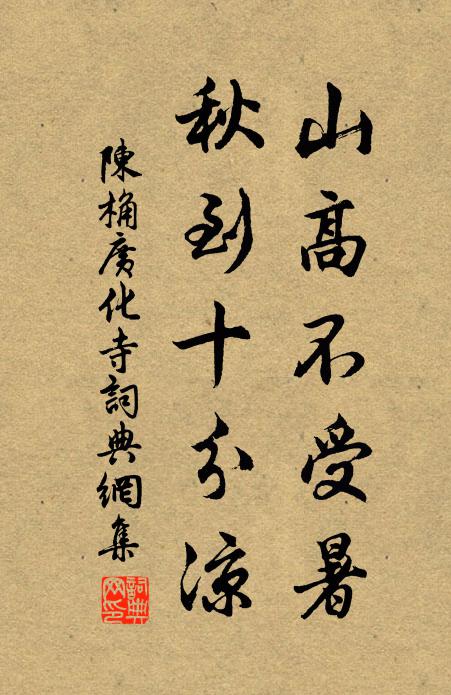 山高不受暑
秋到十分涼
陳桷廣化寺詞典網集
詞典網印